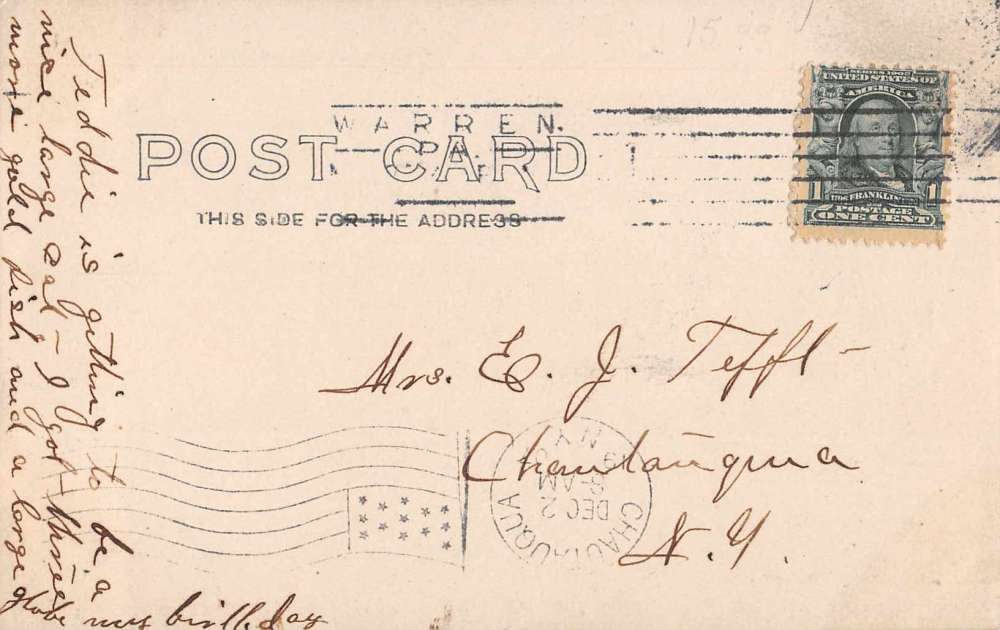 15
SERIES 1902
UNITED STATES OF
AMERICA
FRANKLIN
1 1
POSTAGE
ONE CENT
WARREN.
PA.
POST CARD
THIS SIDE FOR THE ADDRESS
Mrs. E. J. Tefft-
Chautauqua
N.Y.
CHAUTAUQUA
DEC 2
8-AM
N.Y.
Teddie is getting to be a
nice large cat - I got three
more gold fish and a large
globe my birthday